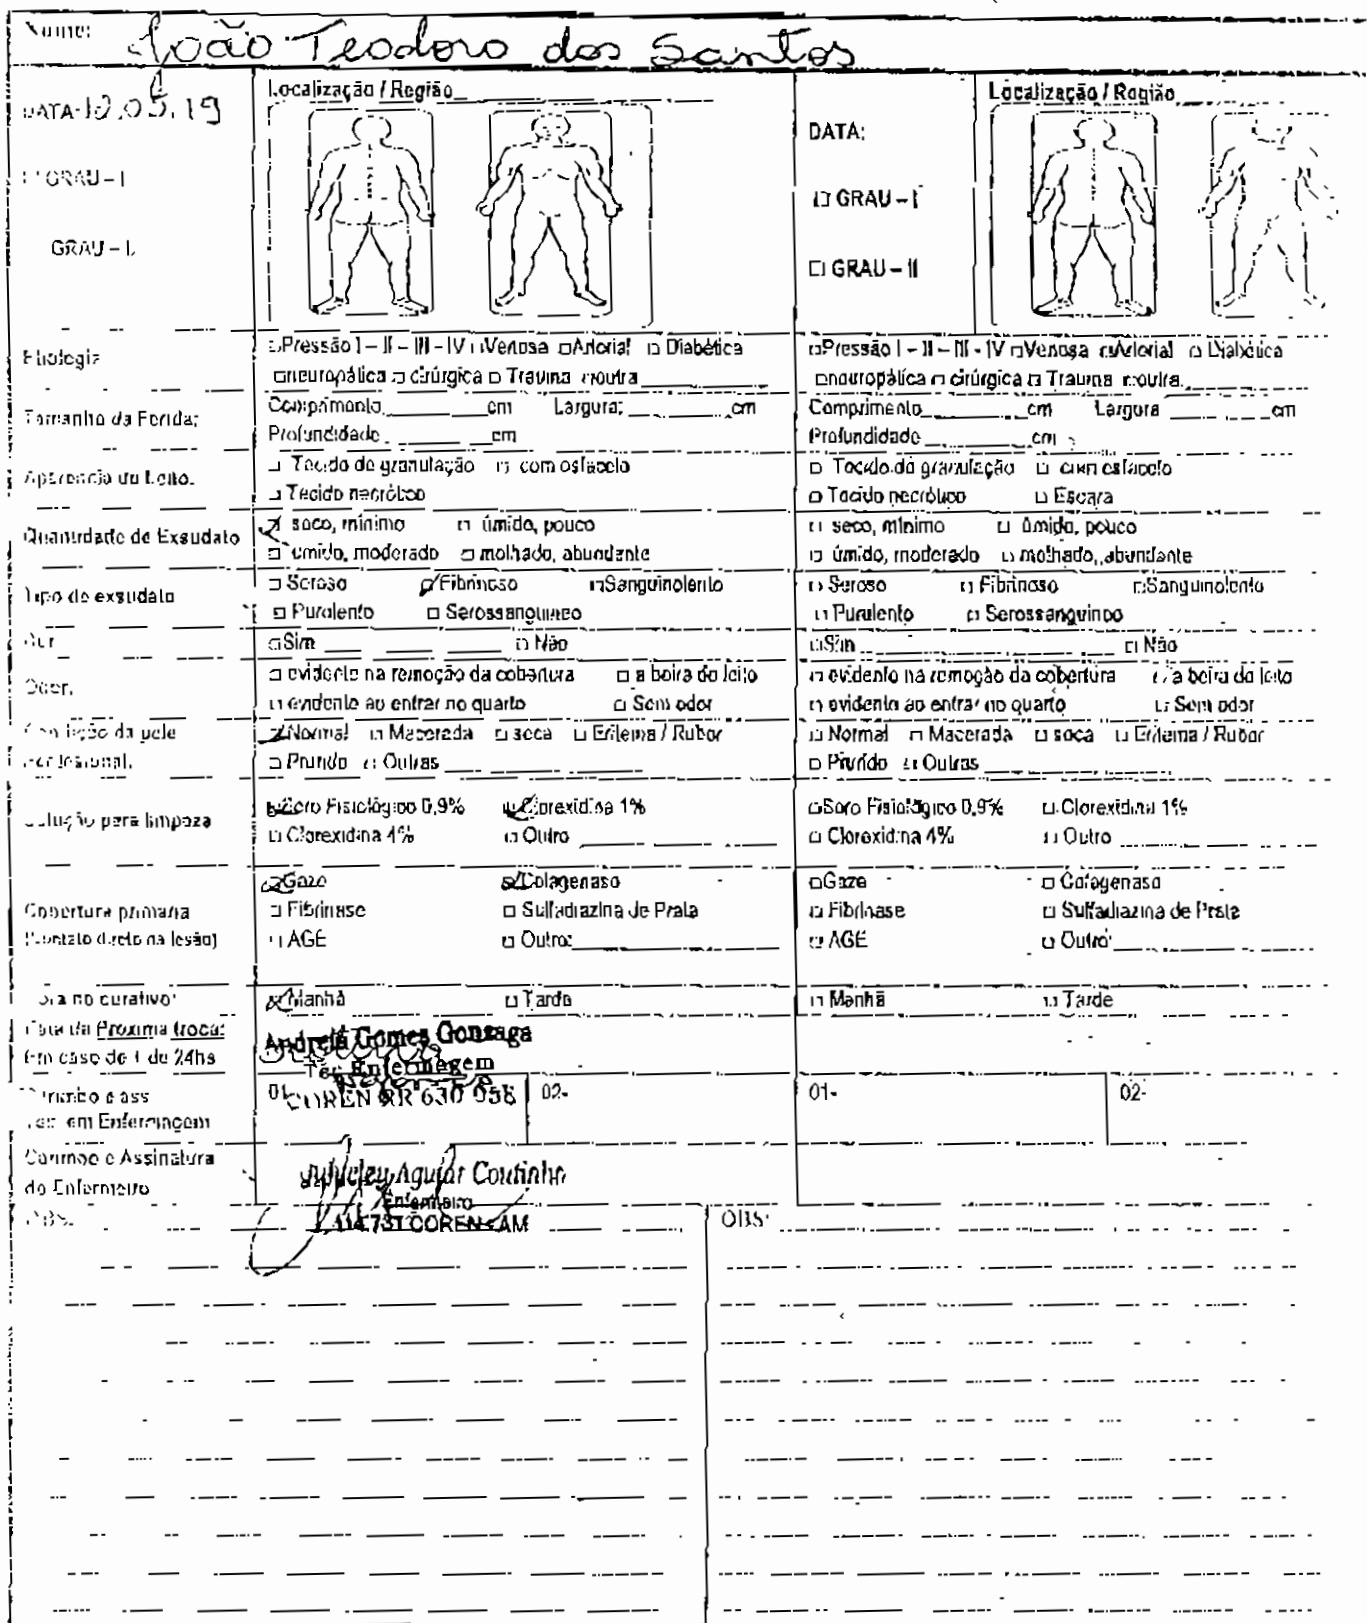 Nome: João Teodoro dos Santos
DATA: 05.19
GRAU – I
GRAU – I
Localização / Região
DATA:
□ GRAU – I
□ GRAU – II
Localização / Região
Etiologia
□Pressão I – II – III - IV □Venosa □Arterial □ Diabética
□neuropática □ cirúrgica □ Trauma □outra
□Pressão I – II – III - IV □Venosa □Arterial □ Diabética
□neuropática □ cirúrgica □ Trauma □outra
Tamanho da Ferida:
Comprimento cm Largura: cm
Profundidade cm
Comprimento cm Largura cm
Profundidade cm
Aparencia do Leito.
□ Tecido de granulação □ com esfacelo
□ Tecido necrótico
□ Tecido de granulação □ com esfacelo
□ Tecido necrótico □ Escara
Quantidade de Exsudato
□ seco, mínimo □ úmido, pouco
□ úmido, moderado □ molhado, abundante
□ seco, mínimo □ úmido, pouco
□ úmido, moderado □ molhado, abundante
Tipo de exsudato
□ Seroso □ Fibrinoso □Sanguinolento
□ Purulento □ Serossanguineo
□ Seroso □ Fibrinoso □Sanguinolento
□ Purulento □ Serossanguineo
□Sim □ Não
□Sim □ Não
Odor.
□ evidente na remoção da cobertura □ a beira do leito
□ evidente ao entrar no quarto □ Sem odor
□ evidente na remoção da cobertura □ a beira do leito
□ evidente ao entrar no quarto □ Sem odor
Condição da pele
□ Normal □ Macerada □ seca □ Eritema / Rubor
□ Prurido □ Outras
□ Normal □ Macerada □ seca □ Eritema / Rubor
□ Prurido □ Outras
Solução para limpeza
□Soro Fisiológico 0,9% □Clorexidina 1%
□ Clorexidina 4% □ Outro
□Soro Fisiológico 0,9% □ Clorexidina 1%
□ Clorexidina 4% □ Outro
Cobertura primaria
(Contato direto na lesão)
□Gaze □Colagenase
□ Fibrinase □ Sulfadiazina de Prata
□ AGE □ Outro:
□Gaze □ Colagenase
□ Fibrinase □ Sulfadiazina de Prata
□ AGE □ Outro:
no curativo:
□Manhã □ Tarde
□ Manhã □ Tarde
Data da Proxima troca:
Em caso de + de 24hs
Gomes Gonzaga
Téc. Enfermagem
COREN RR 630 058
Carimbo e ass
Tec. em Enfermagem
01- 02-
01- 02-
Carimbo e Assinatura
do Enfermeiro
Aguiar Coutinho
Enfermeiro
114.731 COREN - AM
OBS.
OBS: